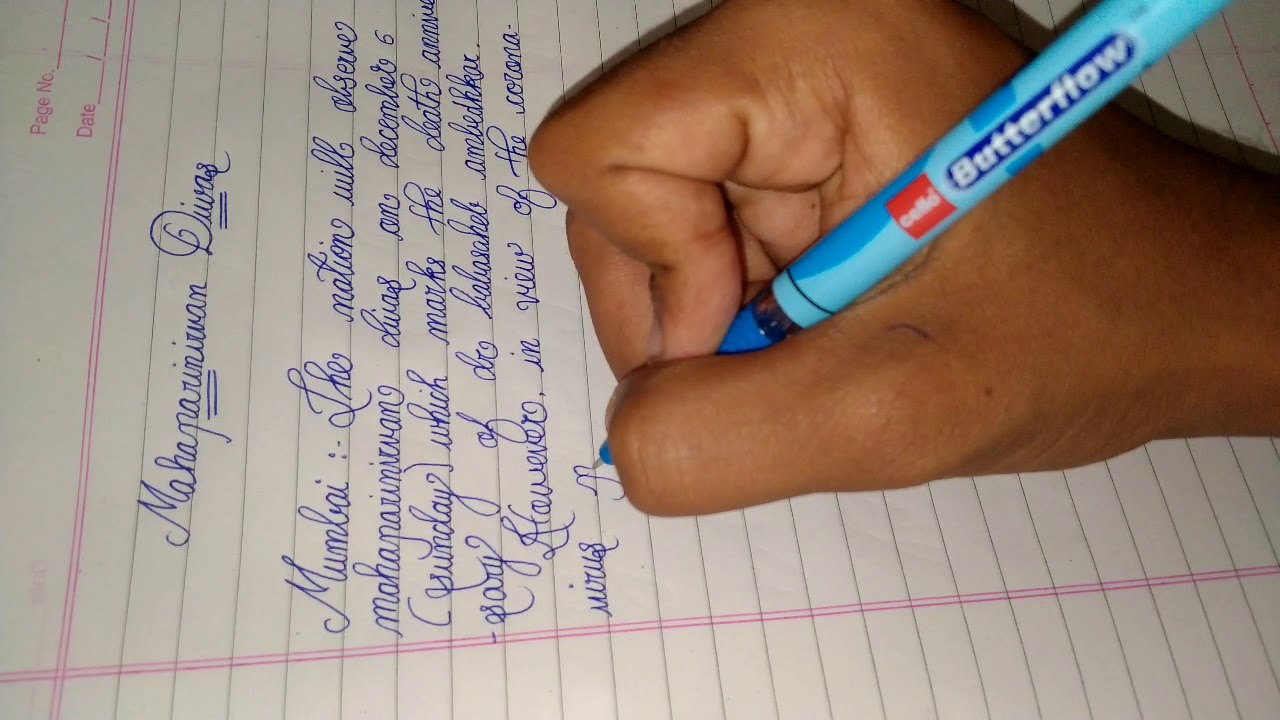 Page No.
Date / /
Mahaparinirwan Diwas
Mumbai :- The nation will observe
mahaparinirwan diwas on december 6
(sunday) which marks the death annive
-rsary of dr babasaheb ambedkar.
However, in view of the corona-
virus p
cello Butterflow